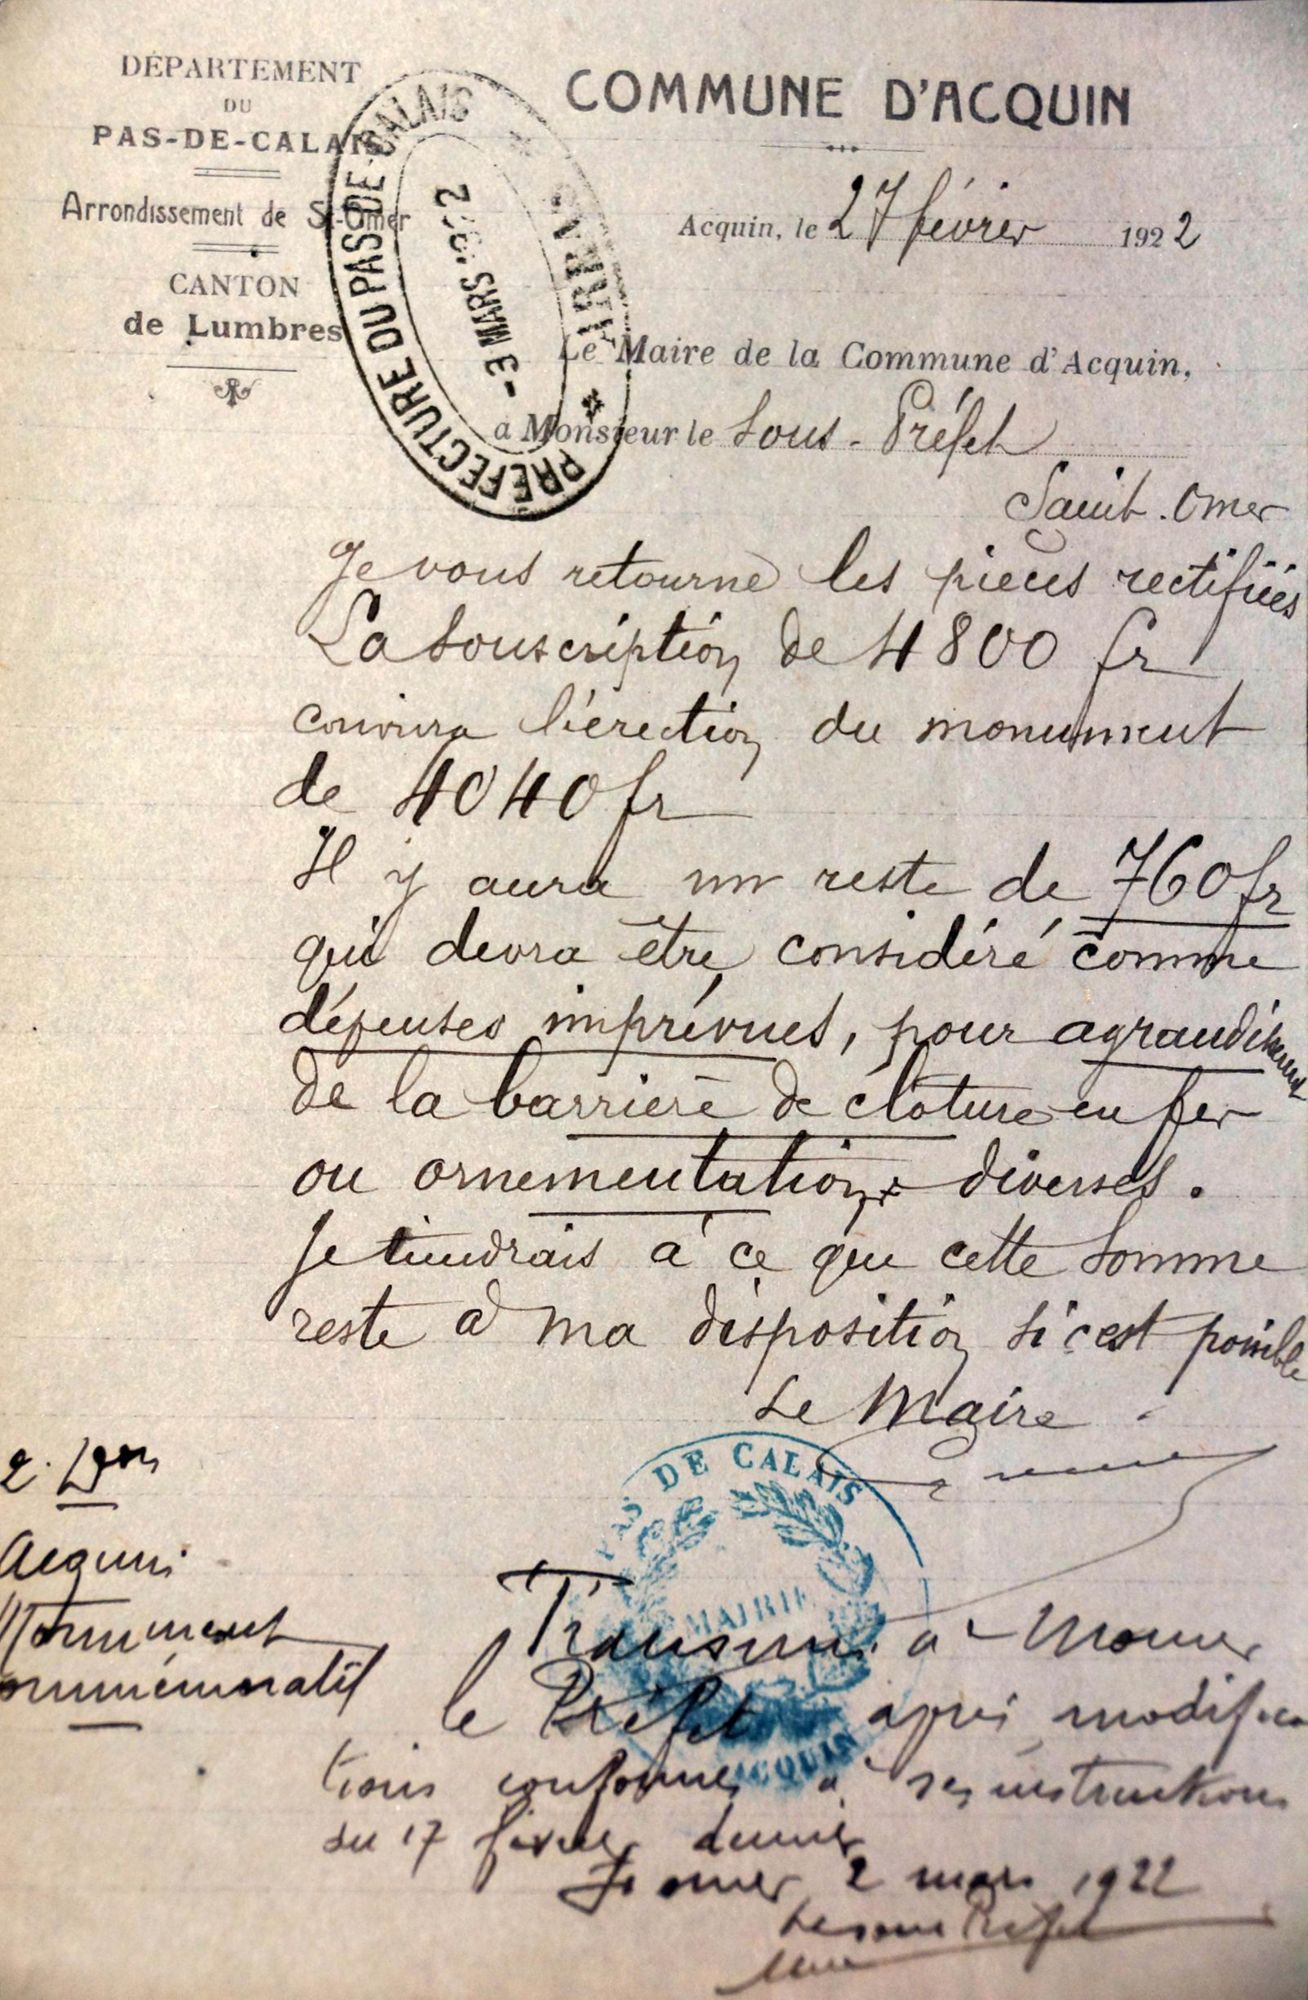 DÉPARTEMENT
DU
PAS-DE-CALAIS
Arrondissement de St-Omer
CANTON
de Lumbres
PRÉFECTURE DU PAS-DE-CALAIS
ARRAS
- 3 MARS 1922
COMMUNE D'ACQUIN
Acquin, le 27 février 1922
Le Maire de la Commune d'Acquin,
à Monsieur le Sous-Préfet
Saint-Omer
Je vous retourne les pièces rectifiées
La Souscription de 4800 fr
couvrira l'érection du monument
de 4040 fr
Il y aura un reste de 760 fr
qui devra être considéré comme
dépenses imprévues, pour agrandissement
de la barrière de clôture en fer
ou ornementations diverses.
Je tiendrais à ce que cette Somme
reste à ma disposition si c'est possible
Le Maire
PAS DE CALAIS
MAIRIE
ACQUIN
2.
Acquin
Monument
commémoratif
Transmis à Monsieur
le Préfet après modifica
tions conformes à ses instructions
du 17 février dernier
St Omer 2 mars 1922
Le Sous Préfet